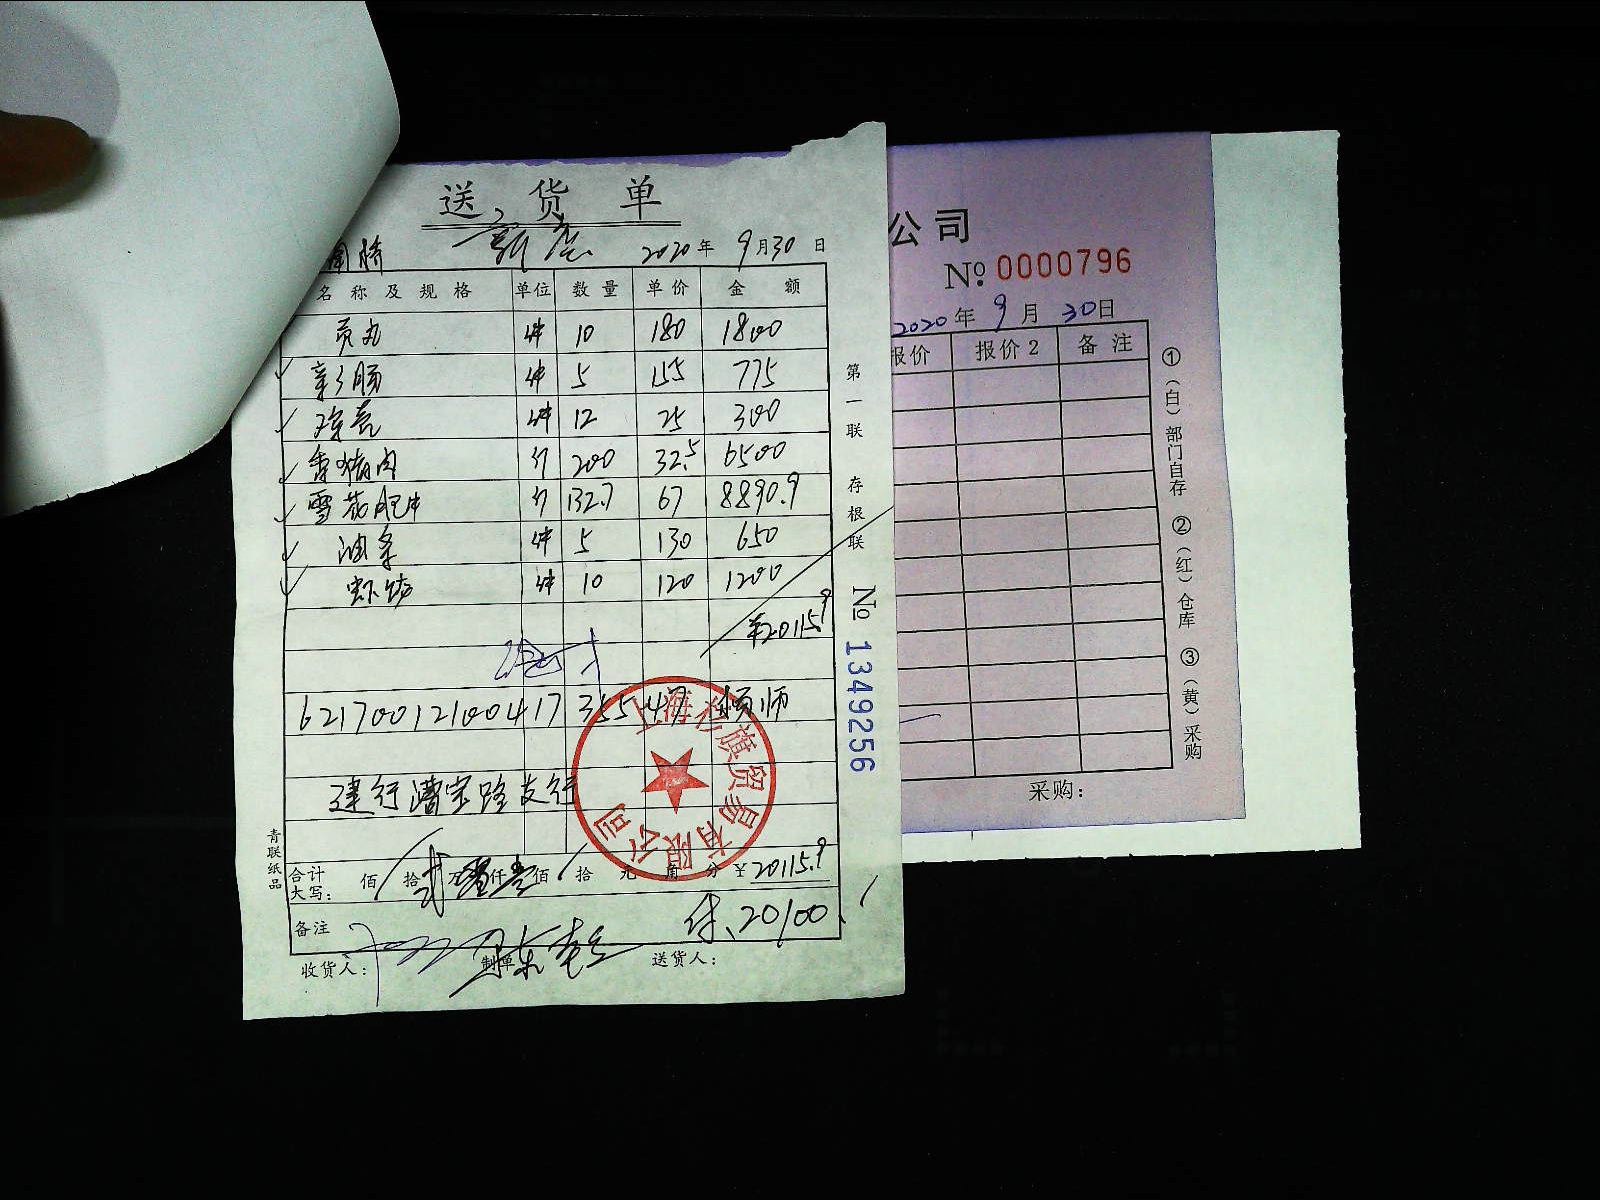 送货单
2020年9月30日
名称及规格 单位 数量 单价 金额
贡丸 件 10 180 1800
亲亲肠 件 5 155 775
件 12 25 300
斤 200 32.5 6500
雪花肥牛 斤 132.7 67 8890.9
油条 件 5 130 650
虾饺 件 10 120 1200
20115.9
6217001210041735547
建行漕宝路支行
合计大写： 佰 拾 贰 万 仟 壹 佰 拾 元 角 分 ￥20115.9
备注 付、20100
收货人： 制单 送货人：
青联纸品
第一联 存根联 № 1349256
上海衫旗贸易有限公司
公司
№ 0000796
2020年9月30日
报价 报价2 备注
采购：
①（白）部门自存 ②（红）仓库 ③（黄）采购